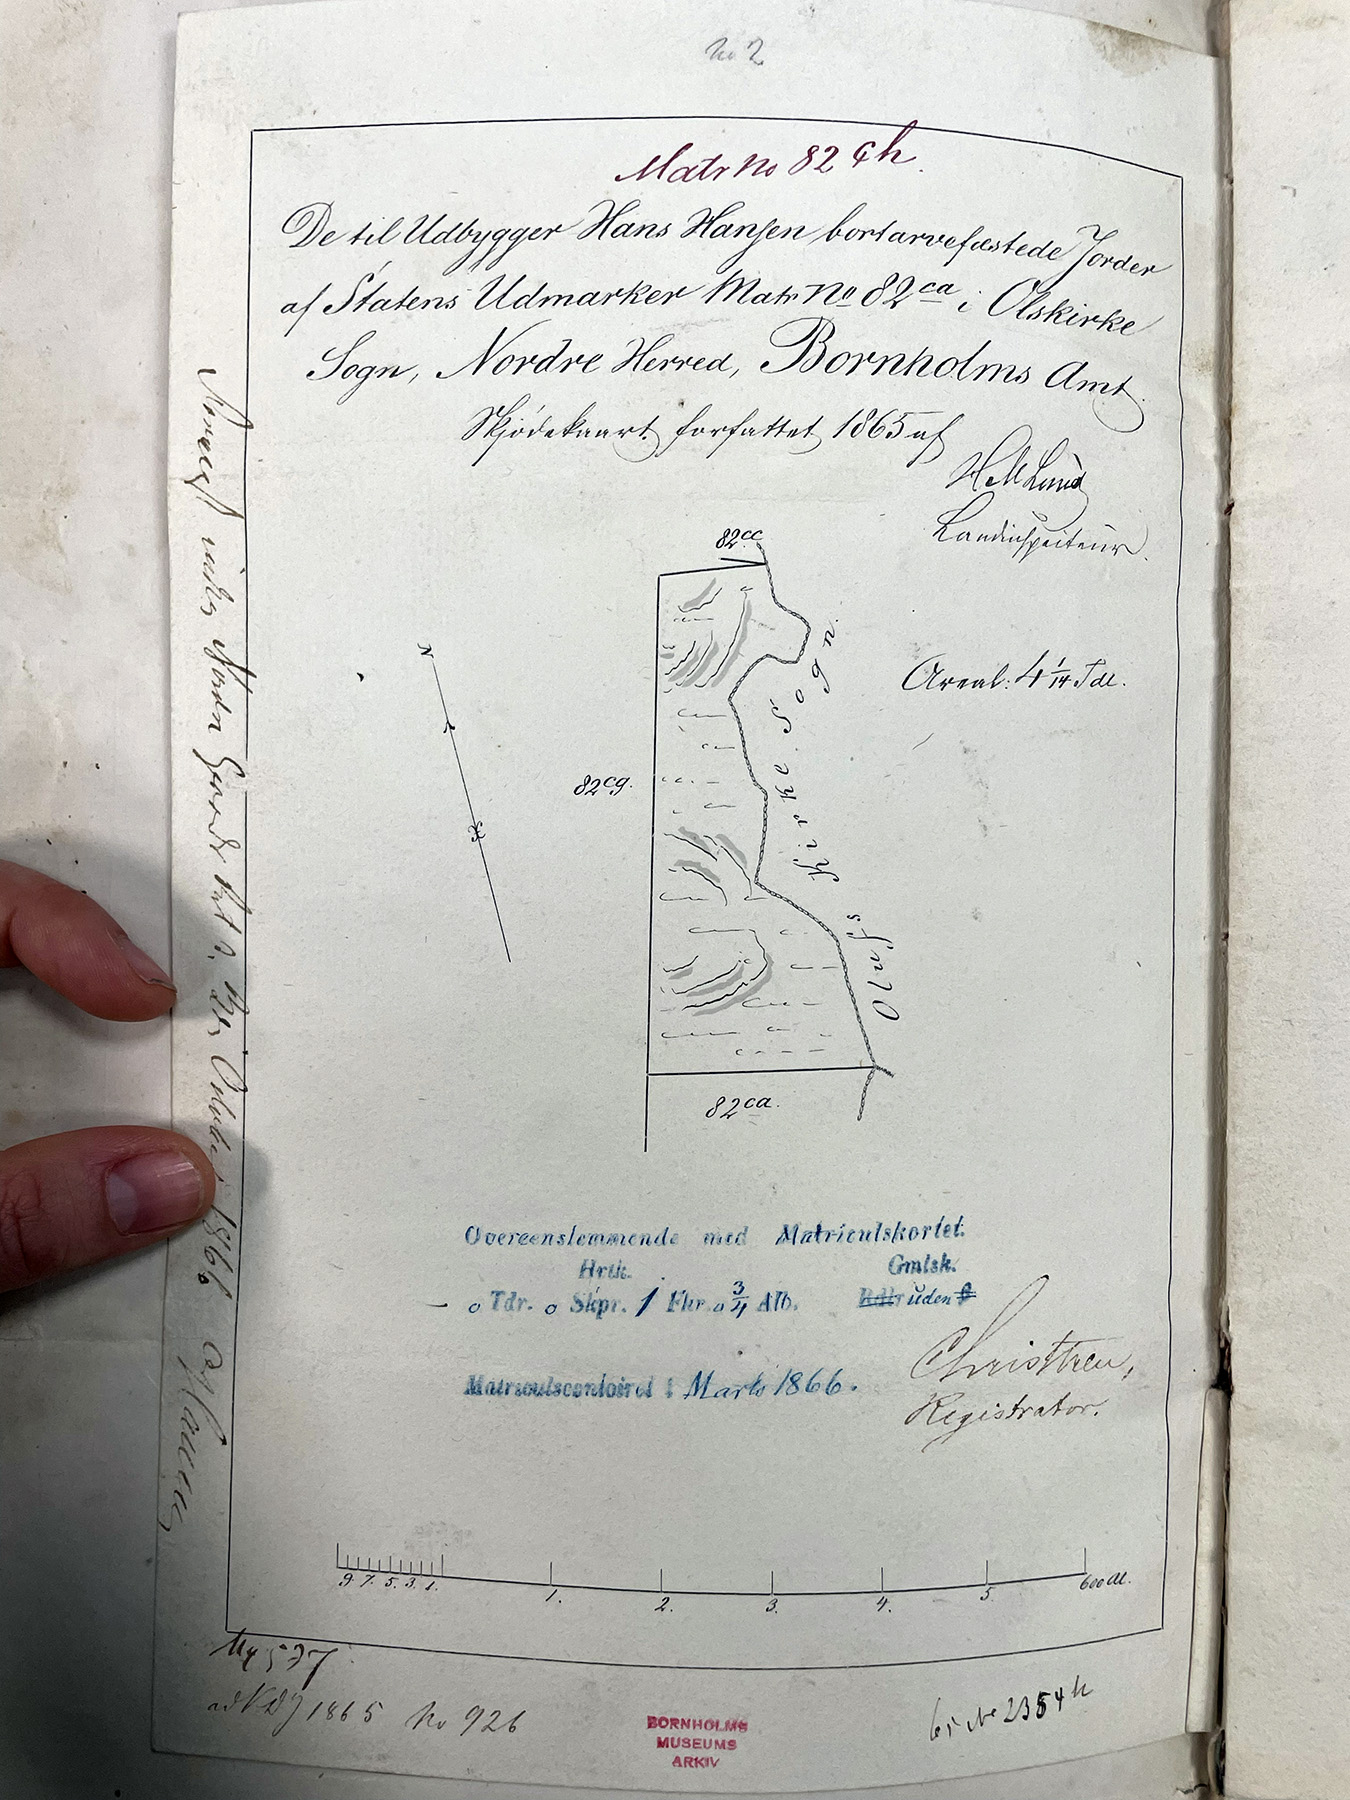 No 2
Matr No 82 ch.
De til Udbygger Hans Hansen bortarvefæstede Jorder
af Statens Udmarker Matr No 82 ca i Olskirke
Sogn, Nordre Herred, Bornholms Amt.
Skjödekaart forfattet 1865 af
H M Lund
Landinspecteur.
82 cc
N
Areal: 4 1/14 Tdl.
82 cg.
Olufs Kirke Sogn.
82 ca.
Overeenstemmende med Matriculskortet.
Hrtk. Gmlsk.
– 0 Tdr. 0 Skpr. 1 Fkr. 0 3/4 Alb. Rdlr uden
Matriculscontoiret i Marts 1866.
Christtreu,
Registrator.
9. 7. 5. 3. 1. 1. 2. 3. 4. 5 600 Al.
537
1865 No 926
No 2354
BORNHOLMS
MUSEUMS
ARKIV
1866